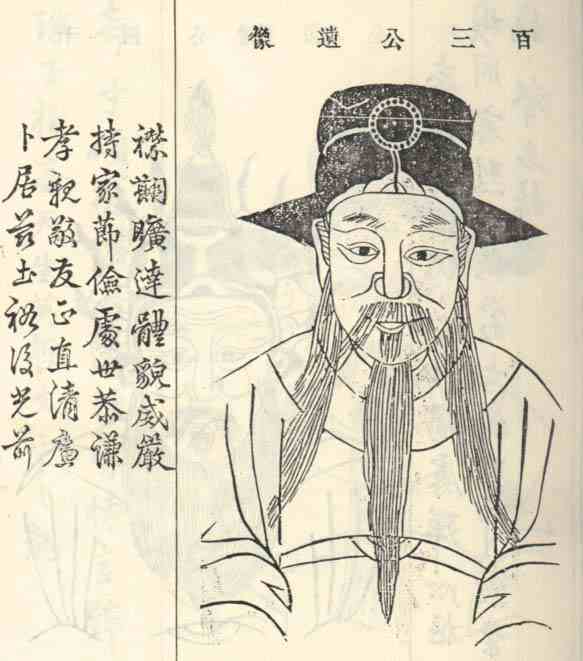 百三公遺像
襟懷曠達體貌威嚴
持家節儉處世恭謙
孝親敬友正直清廉
卜居茲土裕後光前